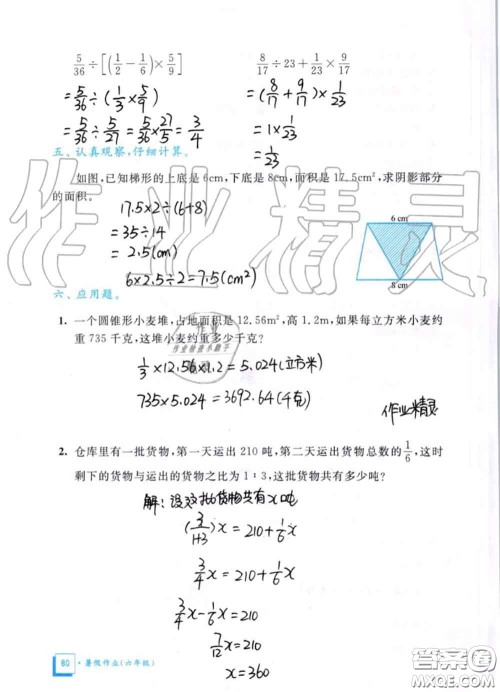 5/36 ÷ [(1/2 − 1/6) × 5/9]
8/17 ÷ 23 + 1/23 × 9/17
= 5/36 ÷ (1/3 × 5/9)
= (8/17 + 9/17) × 1/23
= 5/36 ÷ 5/27 = 5/36 × 27/5 = 3/4
= 1 × 1/23
= 1/23
五、认真观察,仔细计算。
如图,已知梯形的上底是6cm,下底是8cm,面积是17.5cm²,求阴影部分
的面积。
17.5×2÷(6+8)
=35÷14
=2.5(cm)
6×2.5÷2=7.5(cm²)
6 cm
8 cm
六、应用题。
1. 一个圆锥形小麦堆,占地面积是12.56m²,高1.2m,如果每立方米小麦约
重735千克,这堆小麦约重多少千克?
1/3 ×12.56×1.2=5.024(立方米)
735×5.024=3692.64(千克)
作业精灵
2. 仓库里有一批货物,第一天运出210吨,第二天运出货物总数的1/6,这时
剩下的货物与运出的货物之比为1∶3,这批货物共有多少吨?
解:设这批货物共有x吨
(3/1+3)x=210+1/6x
3/4x=210+1/6x
3/4x−1/6x=210
7/12x=210
x=360
80 · 暑假作业(六年级)
作业精灵
作业
作业检查小助手
答案圈
MXQE.COM